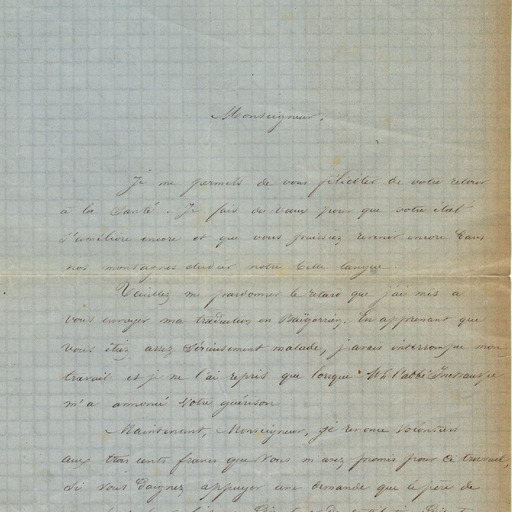 Monseigneur,
Je me permets de vous féliciter de votre retour
à la Santé. Je fais des vœux pour que votre état
s'améliore encore et que vous puissiez revenir encore dans
nos montagnes étudier notre belle langue.
Veuillez me pardonner le retard que j'ai mis à
vous envoyer ma traduction en Baïgorrien. En apprenant que
vous étiez assez sérieusement malade, j'avais interrompu mon
travail et je ne l'ai repris que lorsque Mr l'abbé
m'a annoncé votre guérison
Maintenant, Monseigneur, je renonce volontiers
aux trois cents francs que vous m'avez promis pour ce travail,
si vous daignez appuyer une demande que le père de